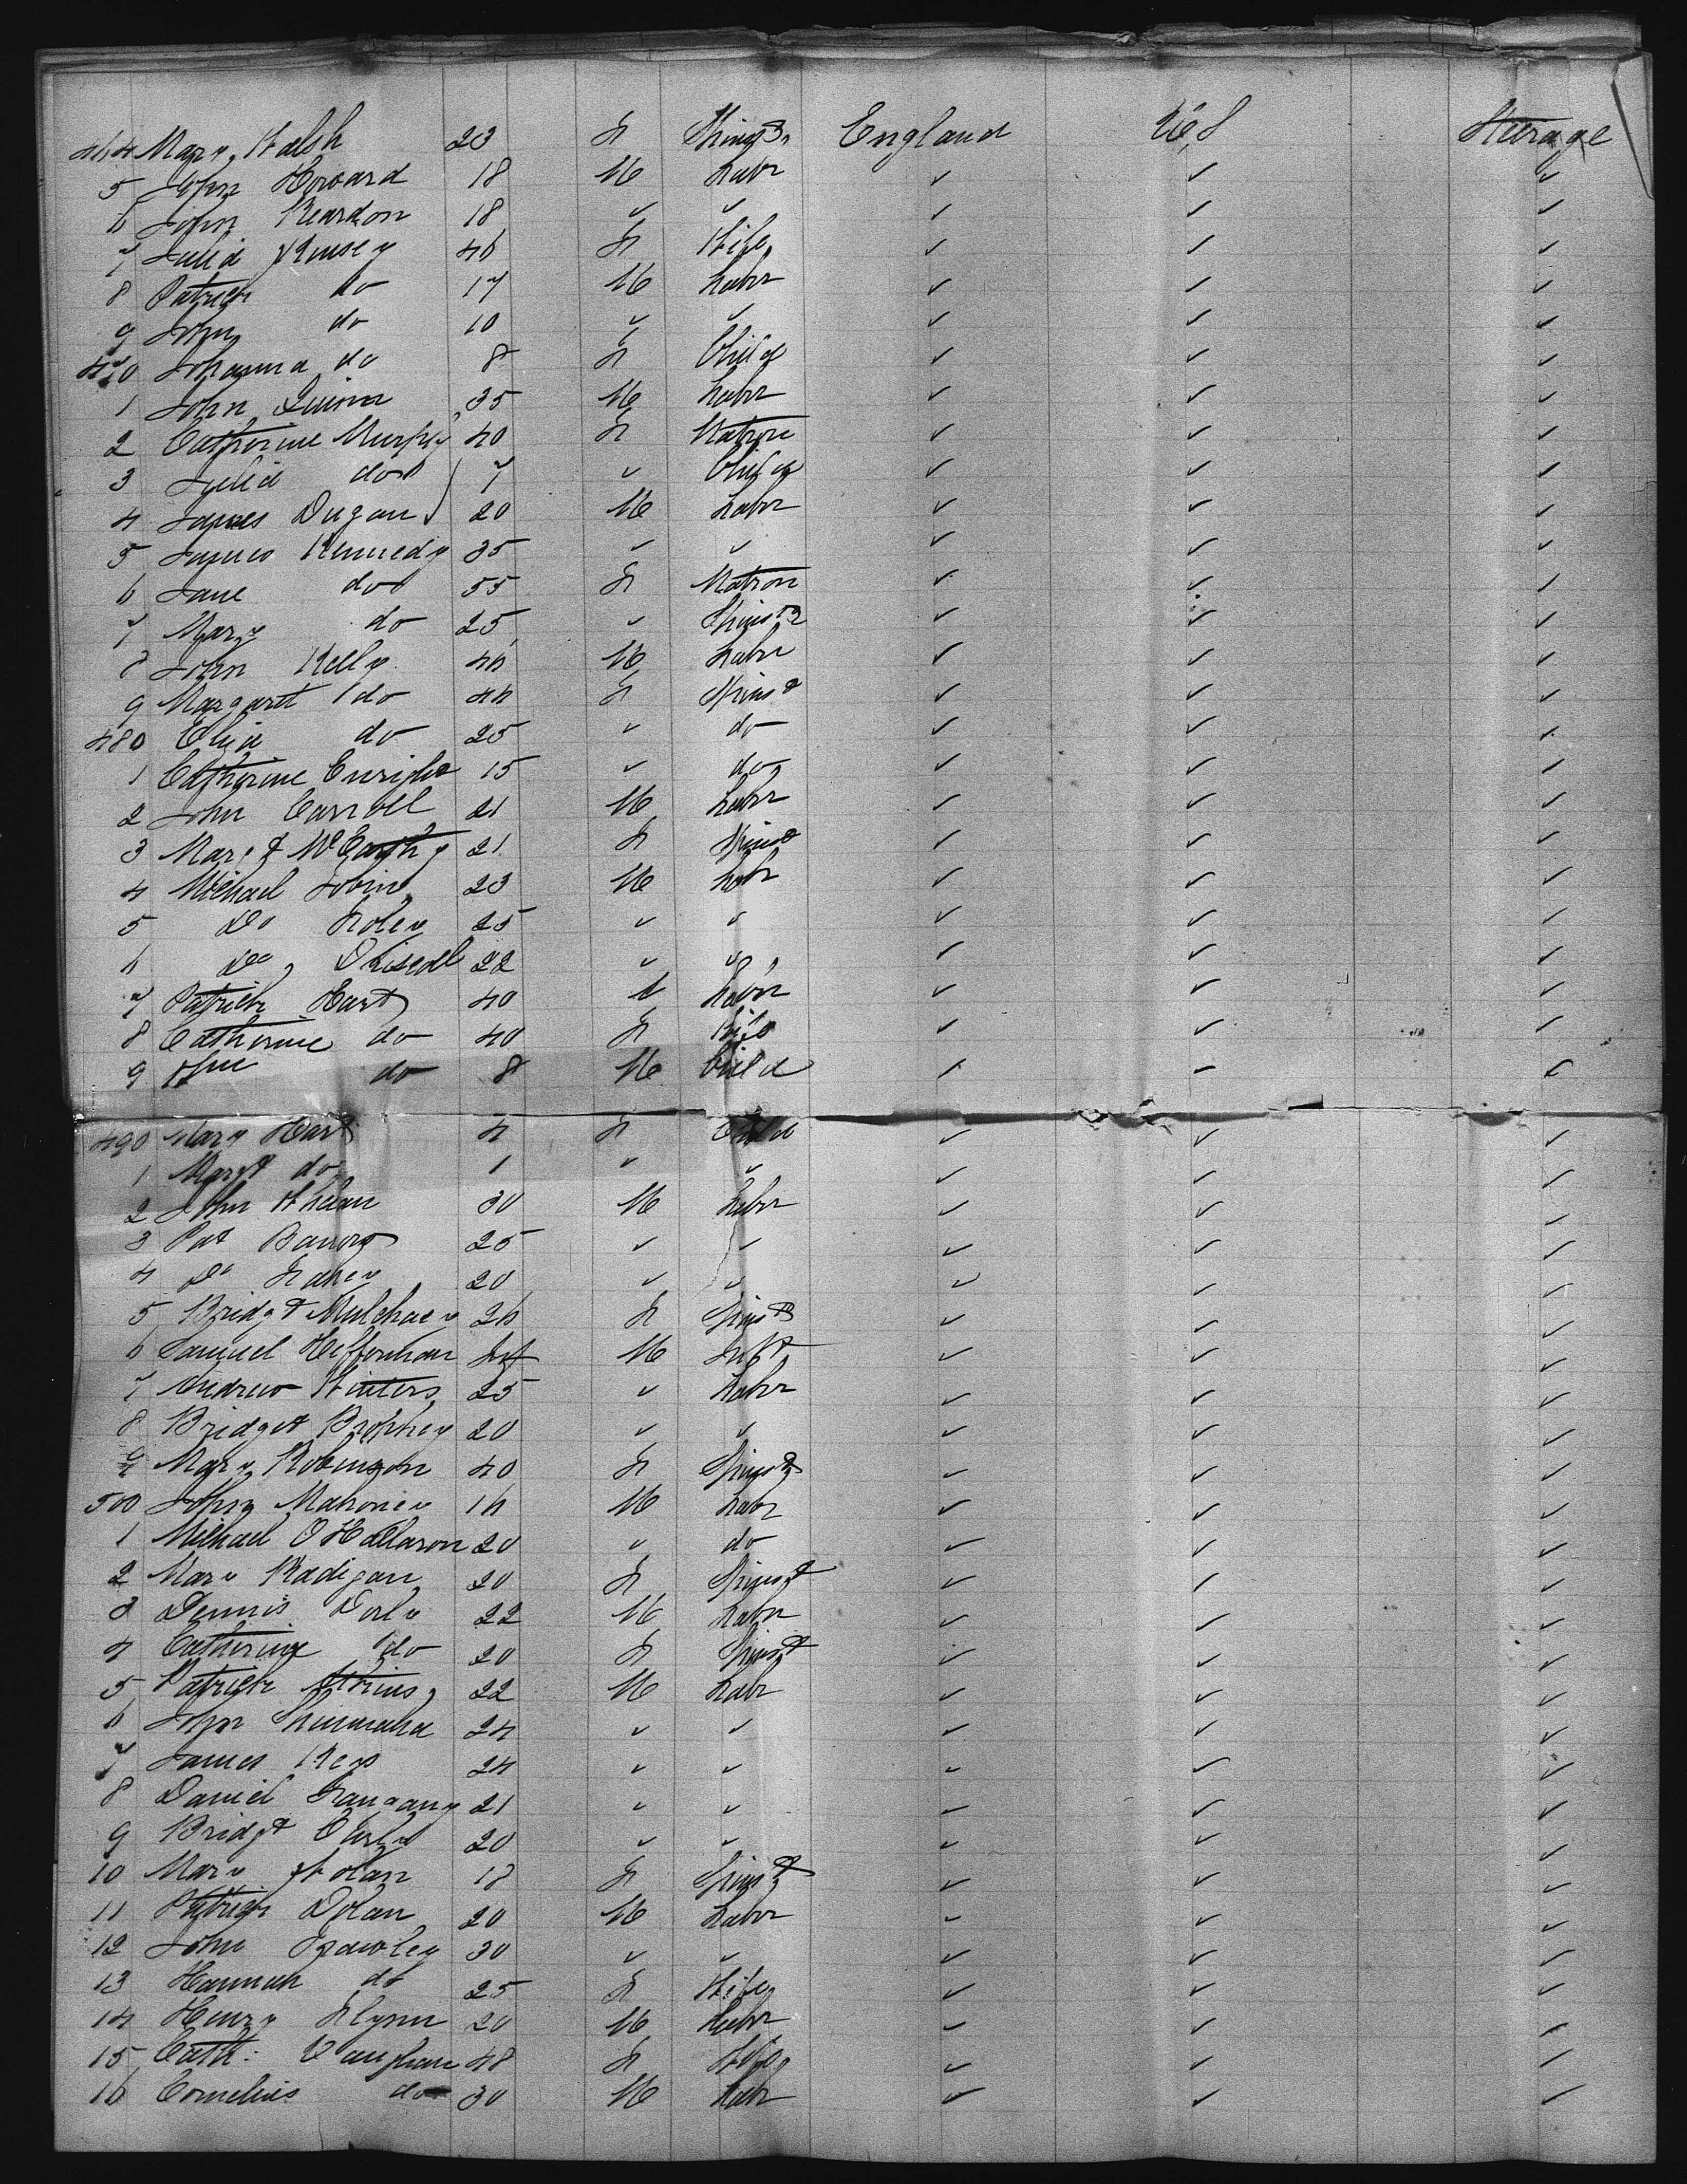 464 Mary Walsh 23 F Spinstr England U,S Steerage
5 John Howard 18 M Labr ✓ ✓ ✓
6 John Reardon 18 ✓ ✓ ✓ ✓ ✓
7 Julia 46 F Wife ✓ ✓ ✓
8 Patrick do 17 M Labr ✓ ✓ ✓
9 John do 10 ✓ ✓ ✓ ✓ ✓
470 Johanna do 8 F Child ✓ ✓ ✓
1 John Quinn 35 M Labr ✓ ✓ ✓
2 Catherine Murphy 40 F Matron ✓ ✓ ✓
3 Julia do 7 ✓ Child ✓ ✓ ✓
4 James Dugan 20 M Labr ✓ ✓ ✓
5 James Kennedy 35 ✓ ✓ ✓ ✓ ✓
6 Jane do 55 F Matron ✓ ✓ ✓
7 Mary do 25 ✓ Spinstr ✓ ✓ ✓
8 John Kelly M Labr ✓ ✓ ✓
9 Margaret do 44 F Spinst ✓ ✓ ✓
480 Eliza do 25 ✓ do ✓ ✓ ✓
1 Catherine Enright 15 ✓ do ✓ ✓ ✓
2 John Carroll 21 M Labr ✓ ✓ ✓
3 Margt McCarthy 21 F Spinst ✓ ✓ ✓
4 Michael Tobin 23 M Labr ✓ ✓ ✓
5 Do Foley 25 ✓ ✓ ✓ ✓ ✓
6 Do Driscoll 22 ✓ ✓ ✓ ✓ ✓
7 Patrick Hart 40 ✓ Labr ✓ ✓ ✓
8 Catherine do 40 F Wife ✓ ✓ ✓
9 Jno do 8 M Child ✓ ✓ ✓
490 Mary Hart 4 F Child ✓ ✓ ✓
1 Margt do 1 ✓ ✓ ✓ ✓ ✓
2 John Whelan 30 M Labr ✓ ✓ ✓
3 Pat 25 ✓ ✓ ✓ ✓ ✓
4 Do Fahey 20 ✓ ✓ ✓ ✓ ✓
5 Bridgt Mulchaey 26 F Spinst ✓ ✓ ✓
6 Samuel Heffernan Inft M Inft ✓ ✓ ✓
7 Andrew Winters 25 ✓ Labr ✓ ✓ ✓
8 Bridget Brophey 20 ✓ ✓ ✓ ✓ ✓
9 Mary Robinson 40 F Spinst ✓ ✓ ✓
500 John Mahoney 16 M Labr ✓ ✓ ✓
1 Michael O Hallaron 20 ✓ do ✓ ✓ ✓
2 Mary Radigan 20 F Spinst ✓ ✓ ✓
3 Dennis Dorly 22 M Labr ✓ ✓ ✓
4 Catherine do 20 F Spinst ✓ ✓ ✓
5 Patrick 22 M Labr ✓ ✓ ✓
6 John 24 ✓ ✓ ✓ ✓ ✓
7 James Keys 24 ✓ ✓ ✓ ✓ ✓
8 Daniel 21 ✓ ✓ ✓ ✓ ✓
9 Bridgt 20 ✓ ✓ ✓ ✓ ✓
10 Mary 18 F Spinst ✓ ✓ ✓
11 Patrick Dolan 20 M Labr ✓ ✓ ✓
12 John 30 ✓ ✓ ✓ ✓ ✓
13 Hannah do 25 F Wife ✓ ✓ ✓
14 Henry Flynn 20 M Labr ✓ ✓ ✓
15 Cath: Vaughan 48 F Wife ✓ ✓ ✓
16 Cornelius do 30 M Labr ✓ ✓ ✓